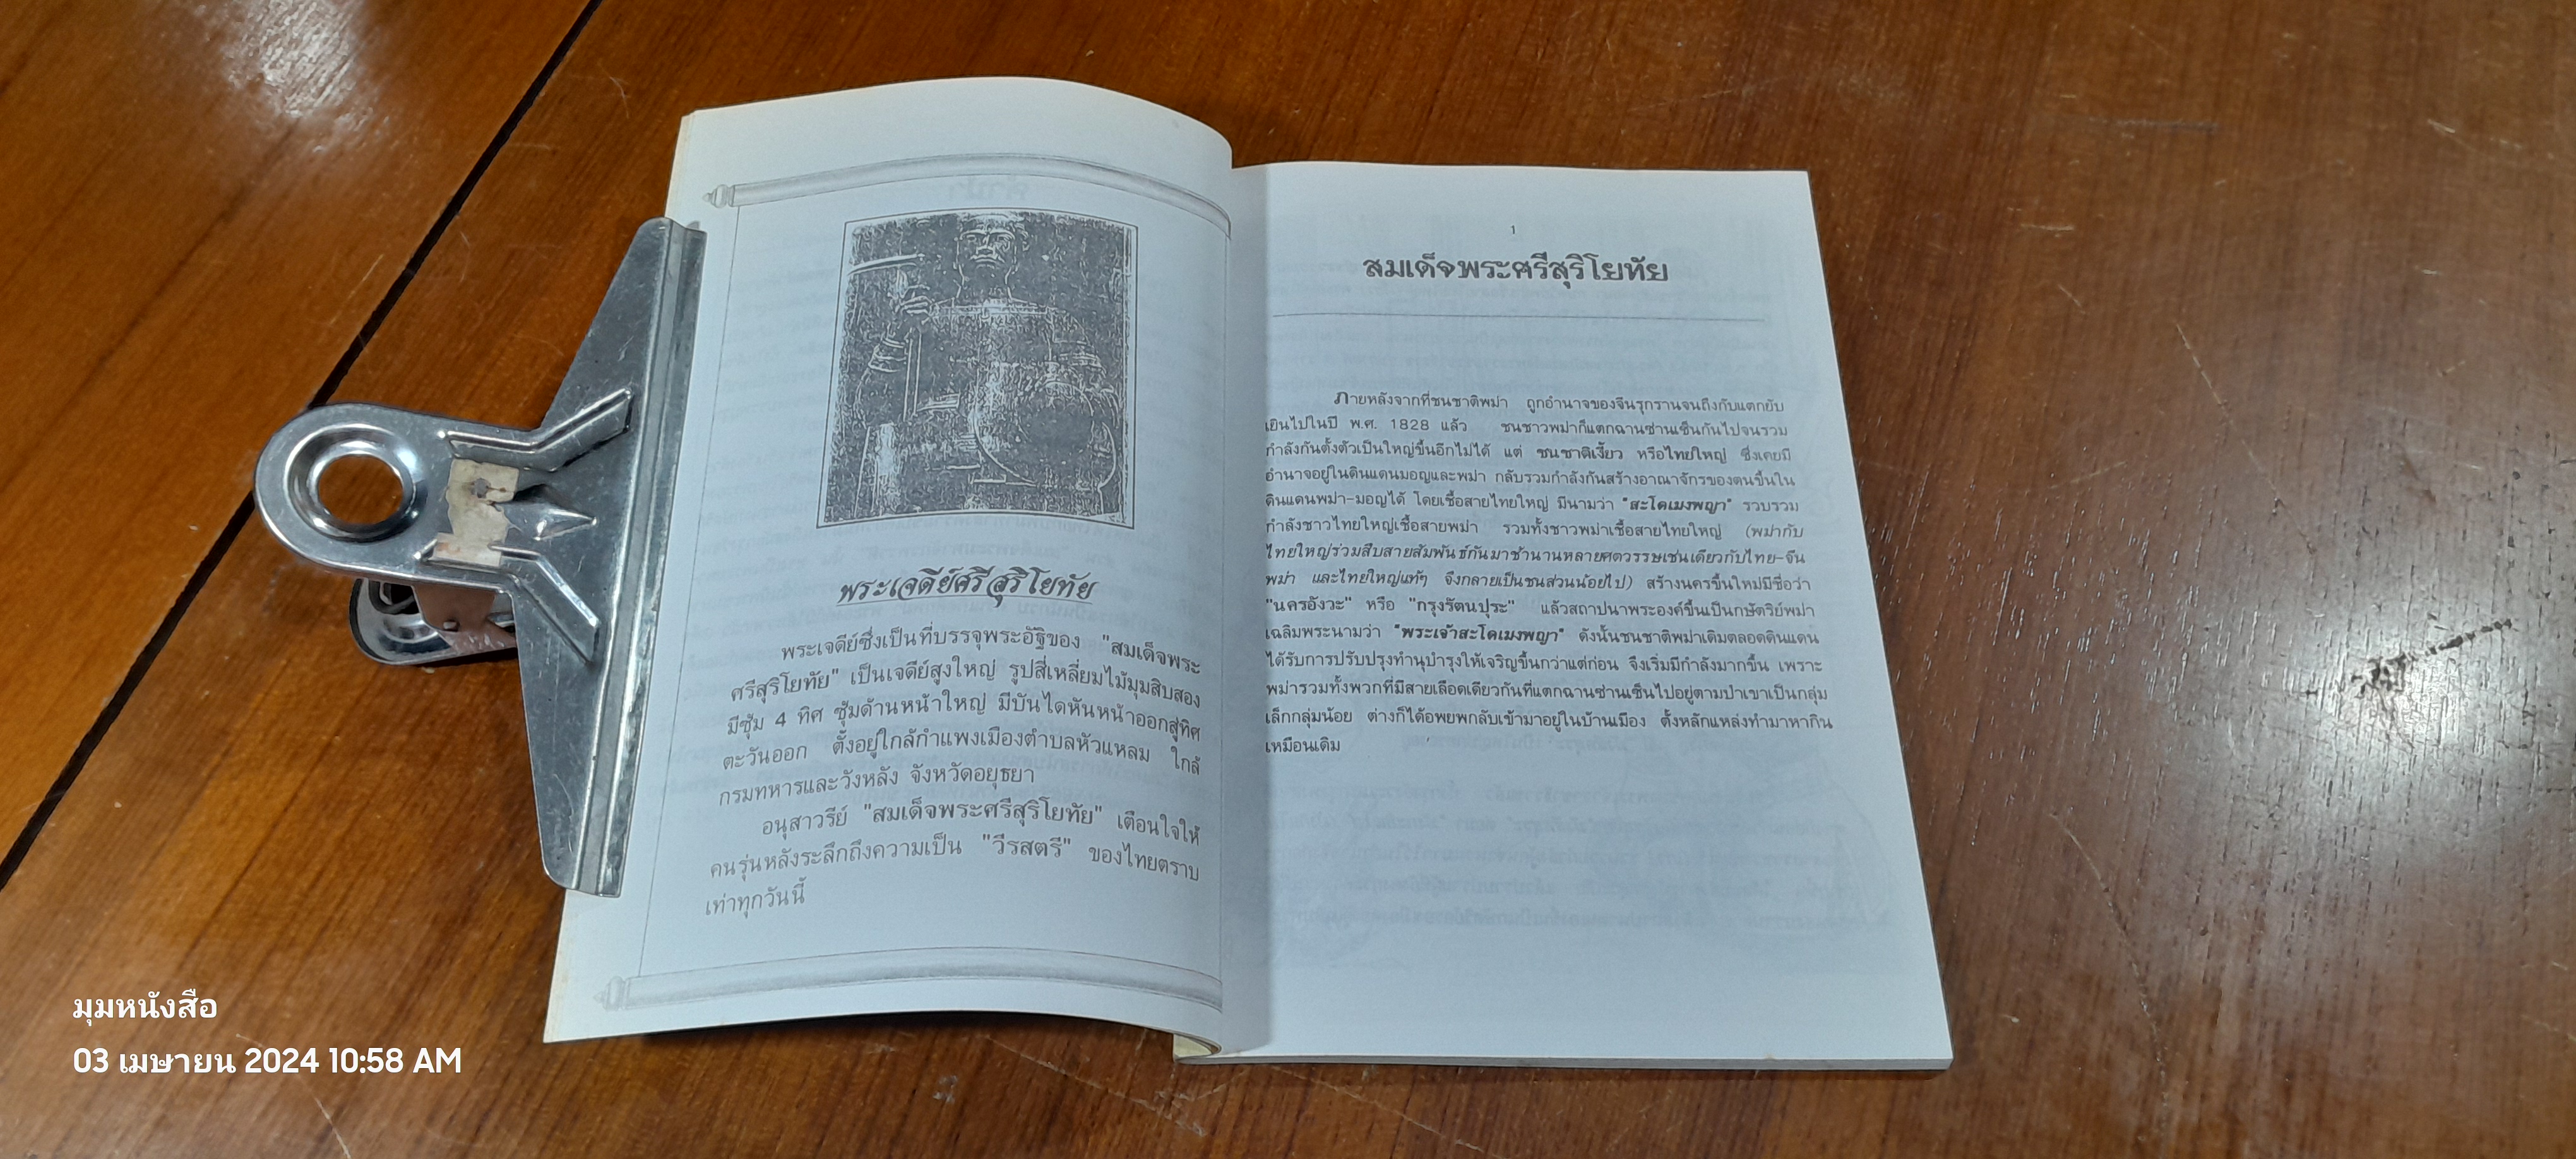 พระเจดีย์ศรีสุริโยทัย
พระเจดีย์ซึ่งเป็นที่บรรจุพระอัฐิของ "สมเด็จพระ
ศรีสุริโยทัย" เป็นเจดีย์สูงใหญ่ รูปสี่เหลี่ยมไม้มุมสิบสอง
มีซุ้ม 4 ทิศ ซุ้มด้านหน้าใหญ่ มีบันไดหันหน้าออกสู่ทิศ
ตะวันออก ตั้งอยู่ใกล้กำแพงเมืองตำบลหัวแหลม ใกล้
กรมทหารและวังหลัง จังหวัดอยุธยา
อนุสาวรีย์ "สมเด็จพระศรีสุริโยทัย" เตือนใจให้
คนรุ่นหลังระลึกถึงความเป็น "วีรสตรี" ของไทยตราบ
เท่าทุกวันนี้
1
สมเด็จพระศรีสุริโยทัย
ภายหลังจากที่ชนชาติพม่า ถูกอำนาจของจีนรุกรานจนถึงกับแตกยับ
เยินไปในปี พ.ศ. 1828 แล้ว ชนชาวพม่าก็แตกฉานซ่านเซ็นกันไปจนรวม
กำลังกันตั้งตัวเป็นใหญ่ขึ้นอีกไม่ได้ แต่ ชนชาติเงี้ยว หรือไทยใหญ่ ซึ่งเคยมี
อำนาจอยู่ในดินแดนมอญและพม่า กลับรวมกำลังกันสร้างอาณาจักรของตนขึ้นใน
ดินแดนพม่า-มอญได้ โดยเชื้อสายไทยใหญ่ มีนามว่า "สะโดเมงพญา" รวบรวม
กำลังชาวไทยใหญ่เชื้อสายพม่า รวมทั้งชาวพม่าเชื้อสายไทยใหญ่ (พม่ากับ
ไทยใหญ่ร่วมสืบสายสัมพันธ์กันมาช้านานหลายศตวรรษเช่นเดียวกับไทย-จีน
พม่า และไทยใหญ่แท้ๆ จึงกลายเป็นชนส่วนน้อยไป) สร้างนครขึ้นใหม่มีชื่อว่า
"นครอังวะ" หรือ "กรุงรัตนปุระ" แล้วสถาปนาพระองค์ขึ้นเป็นกษัตริย์พม่า
เฉลิมพระนามว่า "พระเจ้าสะโดเมงพญา" ดังนั้นชนชาติพม่าเดิมตลอดดินแดน
ได้รับการปรับปรุงทำนุบำรุงให้เจริญขึ้นกว่าแต่ก่อน จึงเริ่มมีกำลังมากขึ้น เพราะ
พม่ารวมทั้งพวกที่มีสายเลือดเดียวกันที่แตกฉานซ่านเซ็นไปอยู่ตามป่าเขาเป็นกลุ่ม
เล็กกลุ่มน้อย ต่างก็ได้อพยพกลับเข้ามาอยู่ในบ้านเมือง ตั้งหลักแหล่งทำมาหากิน
เหมือนเดิม
มุมหนังสือ
03 เมษายน 2024 10:58 AM